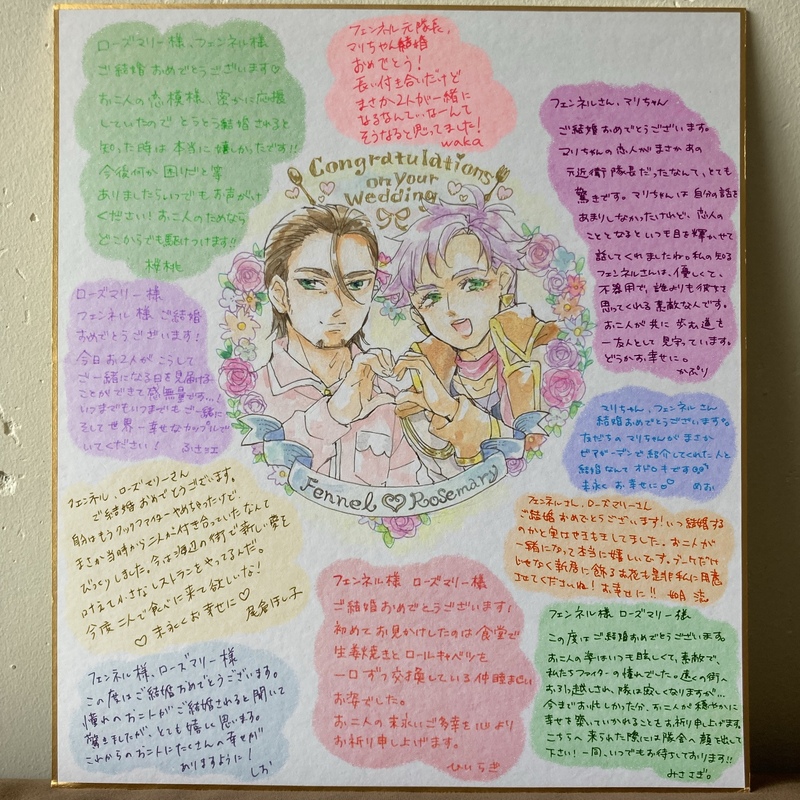 ローズマリー様、フェンネル様
ご結婚おめでとうございます♡
お二人の恋模様、密かに応援
していたので とうとう結婚されると
知った時は本当に嬉しかったです!!
今後何か困りごと等
ありましたらいつでもお声がけ
ください!お二人のためなら
どこからでも駆けつけます!!
桜桃
フェンネル元隊長、
マリちゃん結婚
おめでとう!
長い付き合いだけど
まさか2人が一緒に
なるなんて…なーんて
そうなると思ってました!
waka
フェンネルさん、マリちゃん
ご結婚おめでとうございます。
マリちゃんの恋人がまさかあの
元近衛隊長だったなんて、とても
驚きです。マリちゃんは自分の話を
あまりしなかったけれど、恋人の
こととなるといつも目を輝かせて
話してくれましたね。私の知る
フェンネルさんは、優しくて、
不器用で、誰よりも彼方を
思ってくれる素敵な人です。
お二人が共に歩む道を
一友人として見守っています。
どうかお幸せに。
かぷり
Congratulations
on Your
Wedding
Fennel ♡ Rosemary
ローズマリー様
フェンネル様 ご結婚
おめでとうございます!
今日お2人がこうして
ご一緒になる日を見届ける
ことができて感無量です…!
いつまでもいつまでもご一緒に
そして世界一幸せなカップルで
いてください!
マリちゃん、フェンネルさん
結婚おめでとうございます。
友だちのマリちゃんがまさか
ビアガーデンで紹介してくれた人と
結婚なんてオドロキです
末永くお幸せに♡
めお
フェンネルさん、ローズマリーさん
ご結婚おめでとうございます!いつ結婚する
のかと実はやきもきしてました。お二人が
一緒になって本当に嬉しいです。ブーケだけ
じゃなく新居に飾るお花も是非私に用意
させてくださいね!お幸せに!!
フェンネル、ローズマリーさん
ご結婚おめでとうございます。
自分はもうクックファイターやめちゃったけど、
まさか当時から二人が付き合っていたなんて
びっくりしました。今は海辺の街で新しい愛を
叶えて小さなレストランをやってるんだ。
今度二人で食べに来て欲しいな!
♡ 末永くお幸せに♡
尾倉ほし子
フェンネル様、ローズマリー様
この度はご結婚おめでとうございます。
憧れのお二人がご結婚されると聞いて
驚きましたが、とても嬉しく思います。
これからのお二人にたくさんの幸せが
ありますように!
しお
フェンネル様 ローズマリー様
ご結婚おめでとうございます!
初めてお見かけしたのは食堂で
生姜焼きとロールキャベツを
一口ずつ交換している仲睦まじい
お姿でした。
お二人の末永いご多幸を心より
お祈り申し上げます。
ひいらぎ
フェンネル様 ローズマリー様
この度はご結婚おめでとうございます。
お二人の姿はいつも眩しくて、素敵で、
私たちファイターの憧れでした。遠くの街へ
お引っ越しされ、隊は寂しくなりますが…
今までお忙しかった分、お二人が穏やかに
幸せを築いていかれることをお祈り申し上げます。
こちらへ来られた際には隊舎へ顔を出して
下さい!一同、いつでもお待ちしております!!
みささぎ。